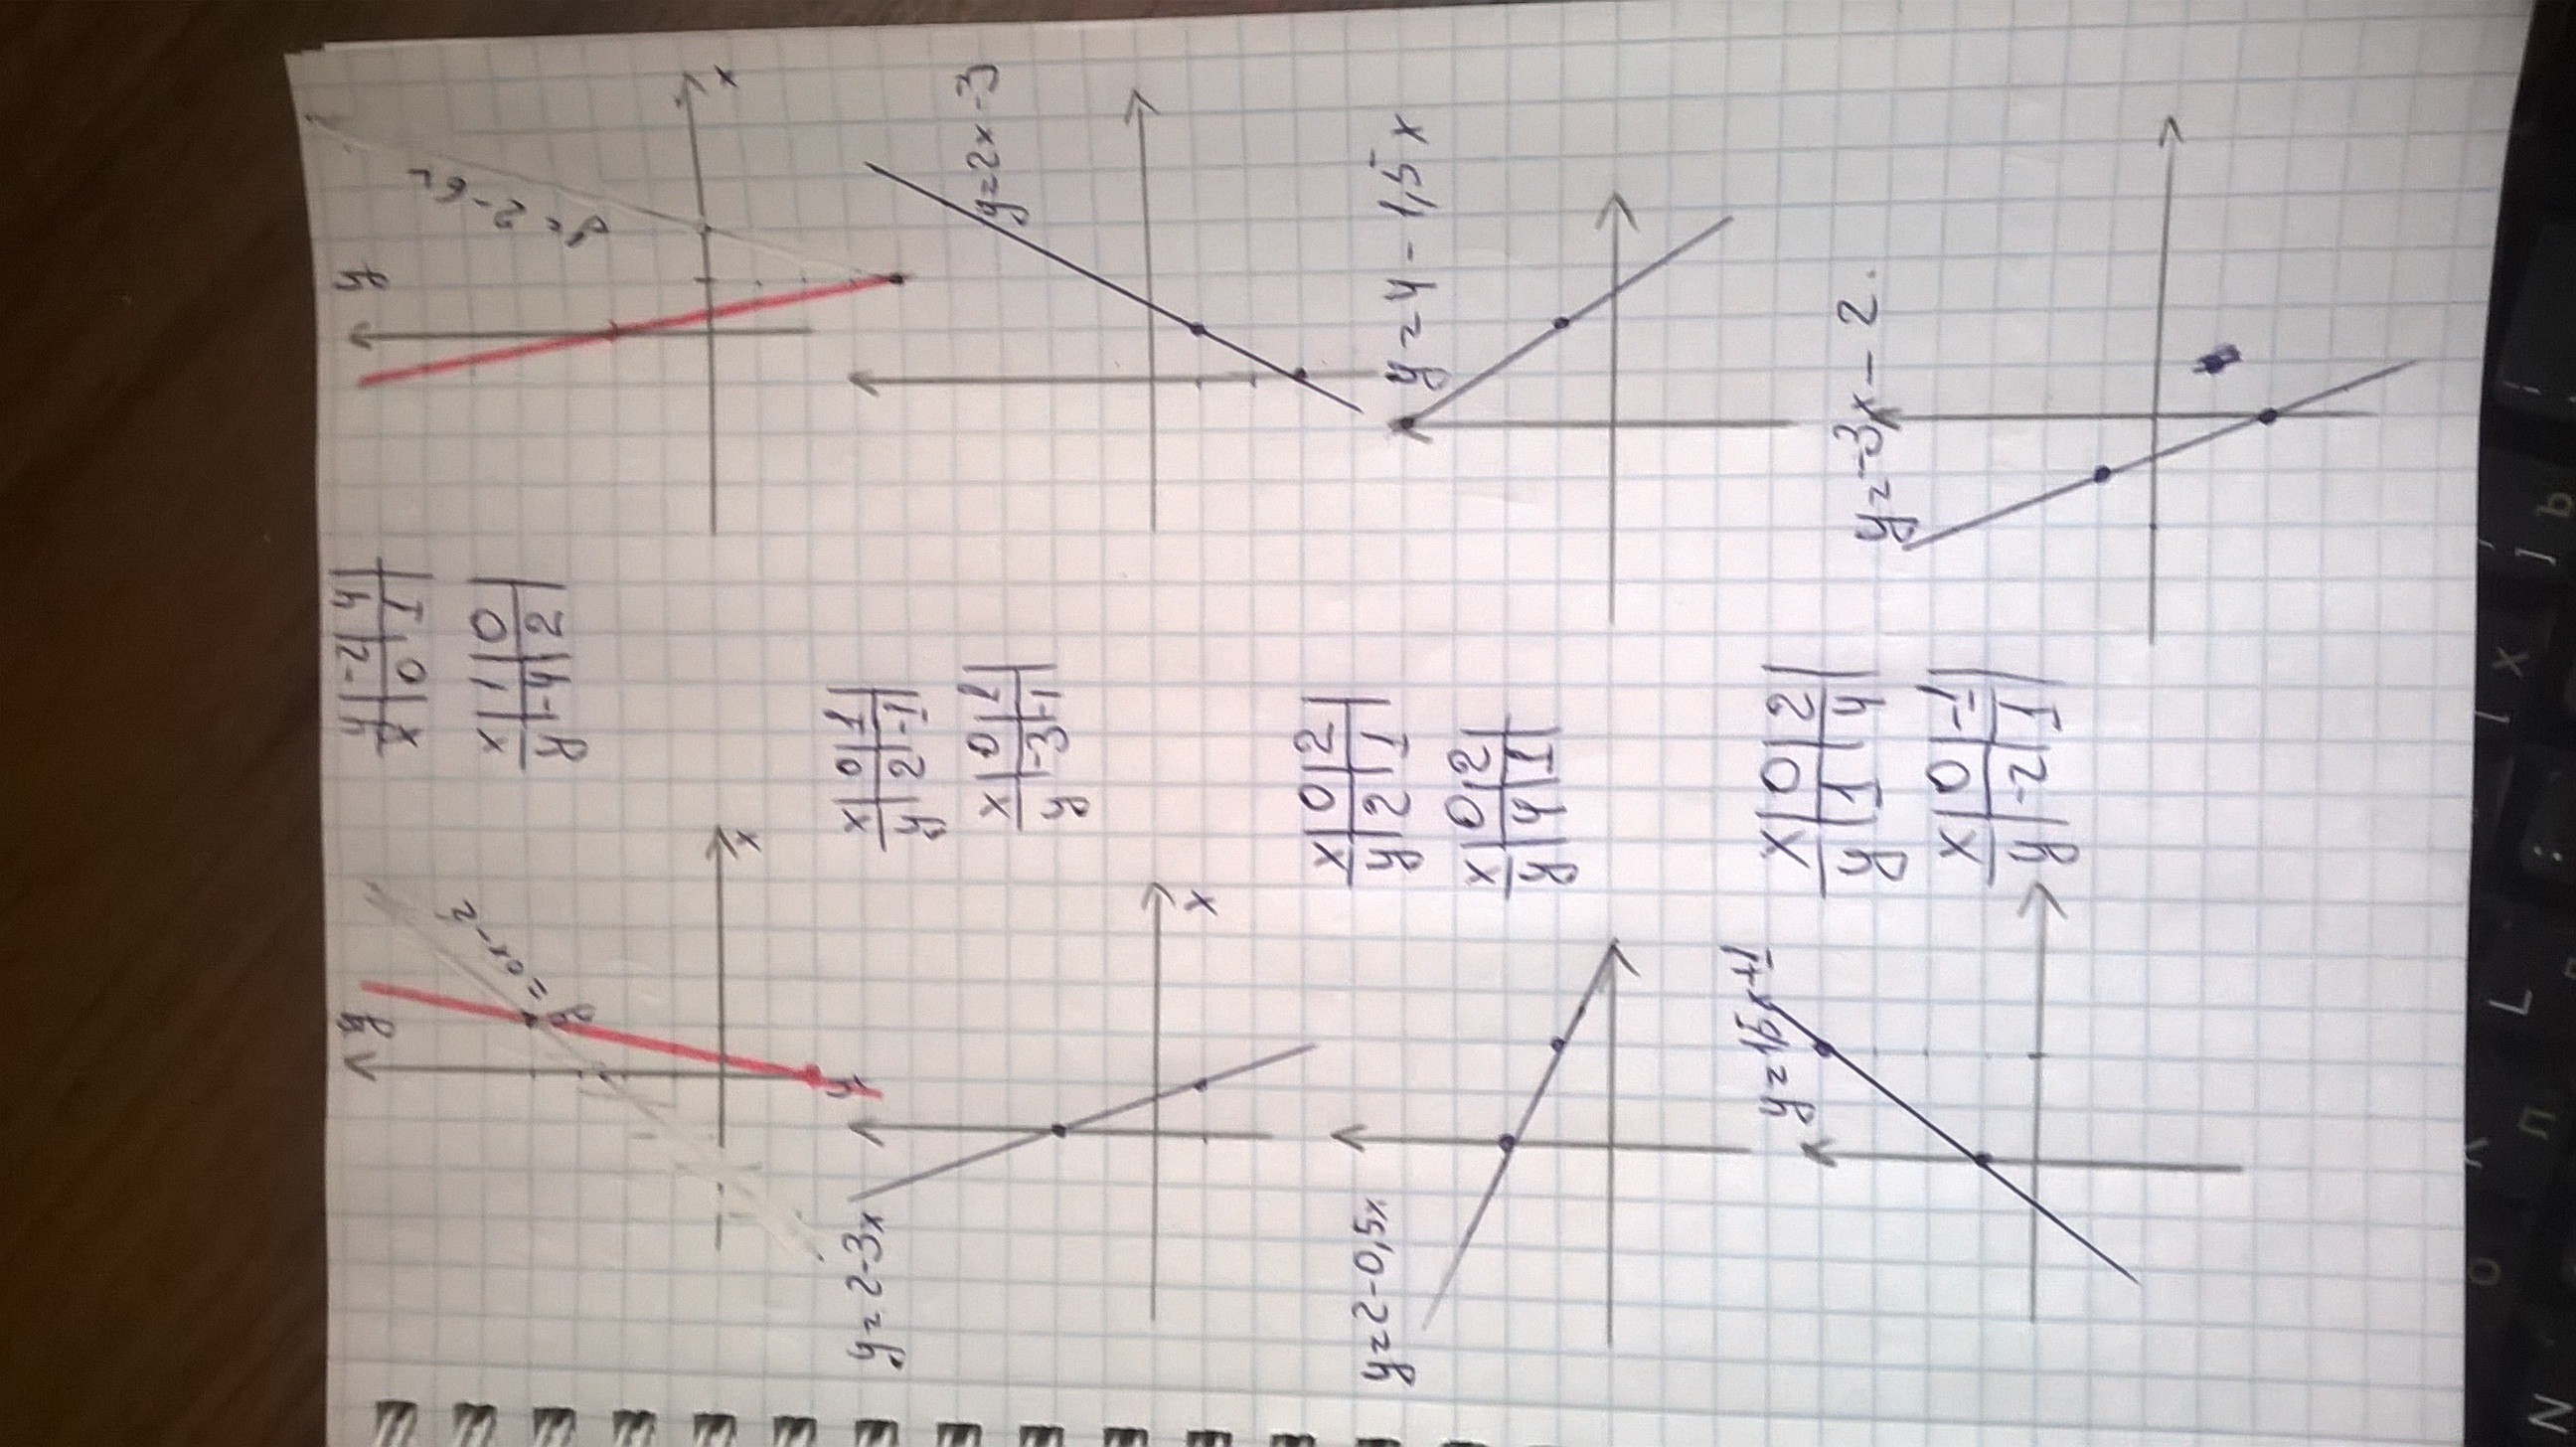 y
x
y | -2 | 4 |
x | 0 | 1 |
x | 1 | 0 |
y | -4 | 2 |
y
x
y = 2-3x
x
x | 0 | 1 |
y | 2 | -1 |
x | 0 | 1 |
y | -3 | -1 |
y=2x-3
y=2-0,5x
x | 0 | 2 |
y | 2 | 1 |
x | 0 | 2 |
y | 4 | 1 |
y = 4 - 1,5x
y=1,5x+1
x | 0 | 2 |
y | 1 | 4 |
x | 0 | -1 |
y | -2 | 1 |
y=-3x-2.